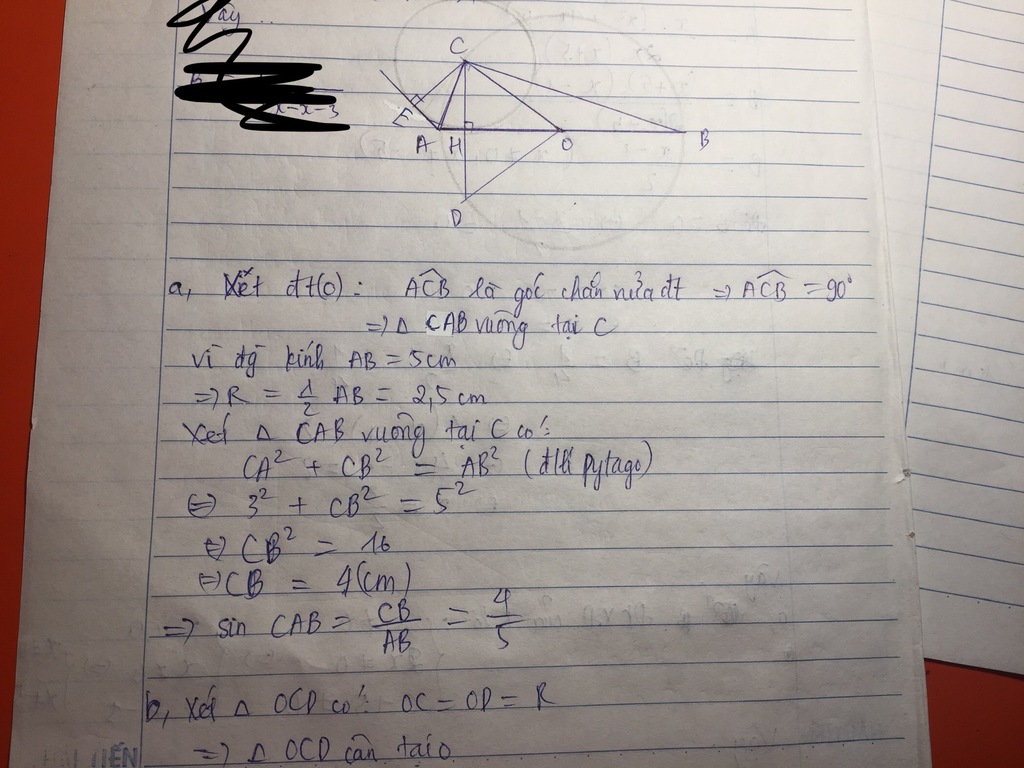 Vậy ...
x-x-3
C
E
A H O B
D
a, Xét đt(O): ACB là góc chắn nửa đt => ACB = 90°
=> Δ CAB vuông tại C
vì đg kính AB = 5cm
=> R = 1/2 AB = 2,5 cm
Xét Δ CAB vuông tại C có:
CA² + CB² = AB² (đlí pytago)
<=> 3² + CB² = 5²
<=> CB² = 16
<=> CB = 4(cm)
=> sin CAB = CB/AB = 4/5
b, Xét Δ OCD có: OC = OD = R
=> Δ OCD cân tại O